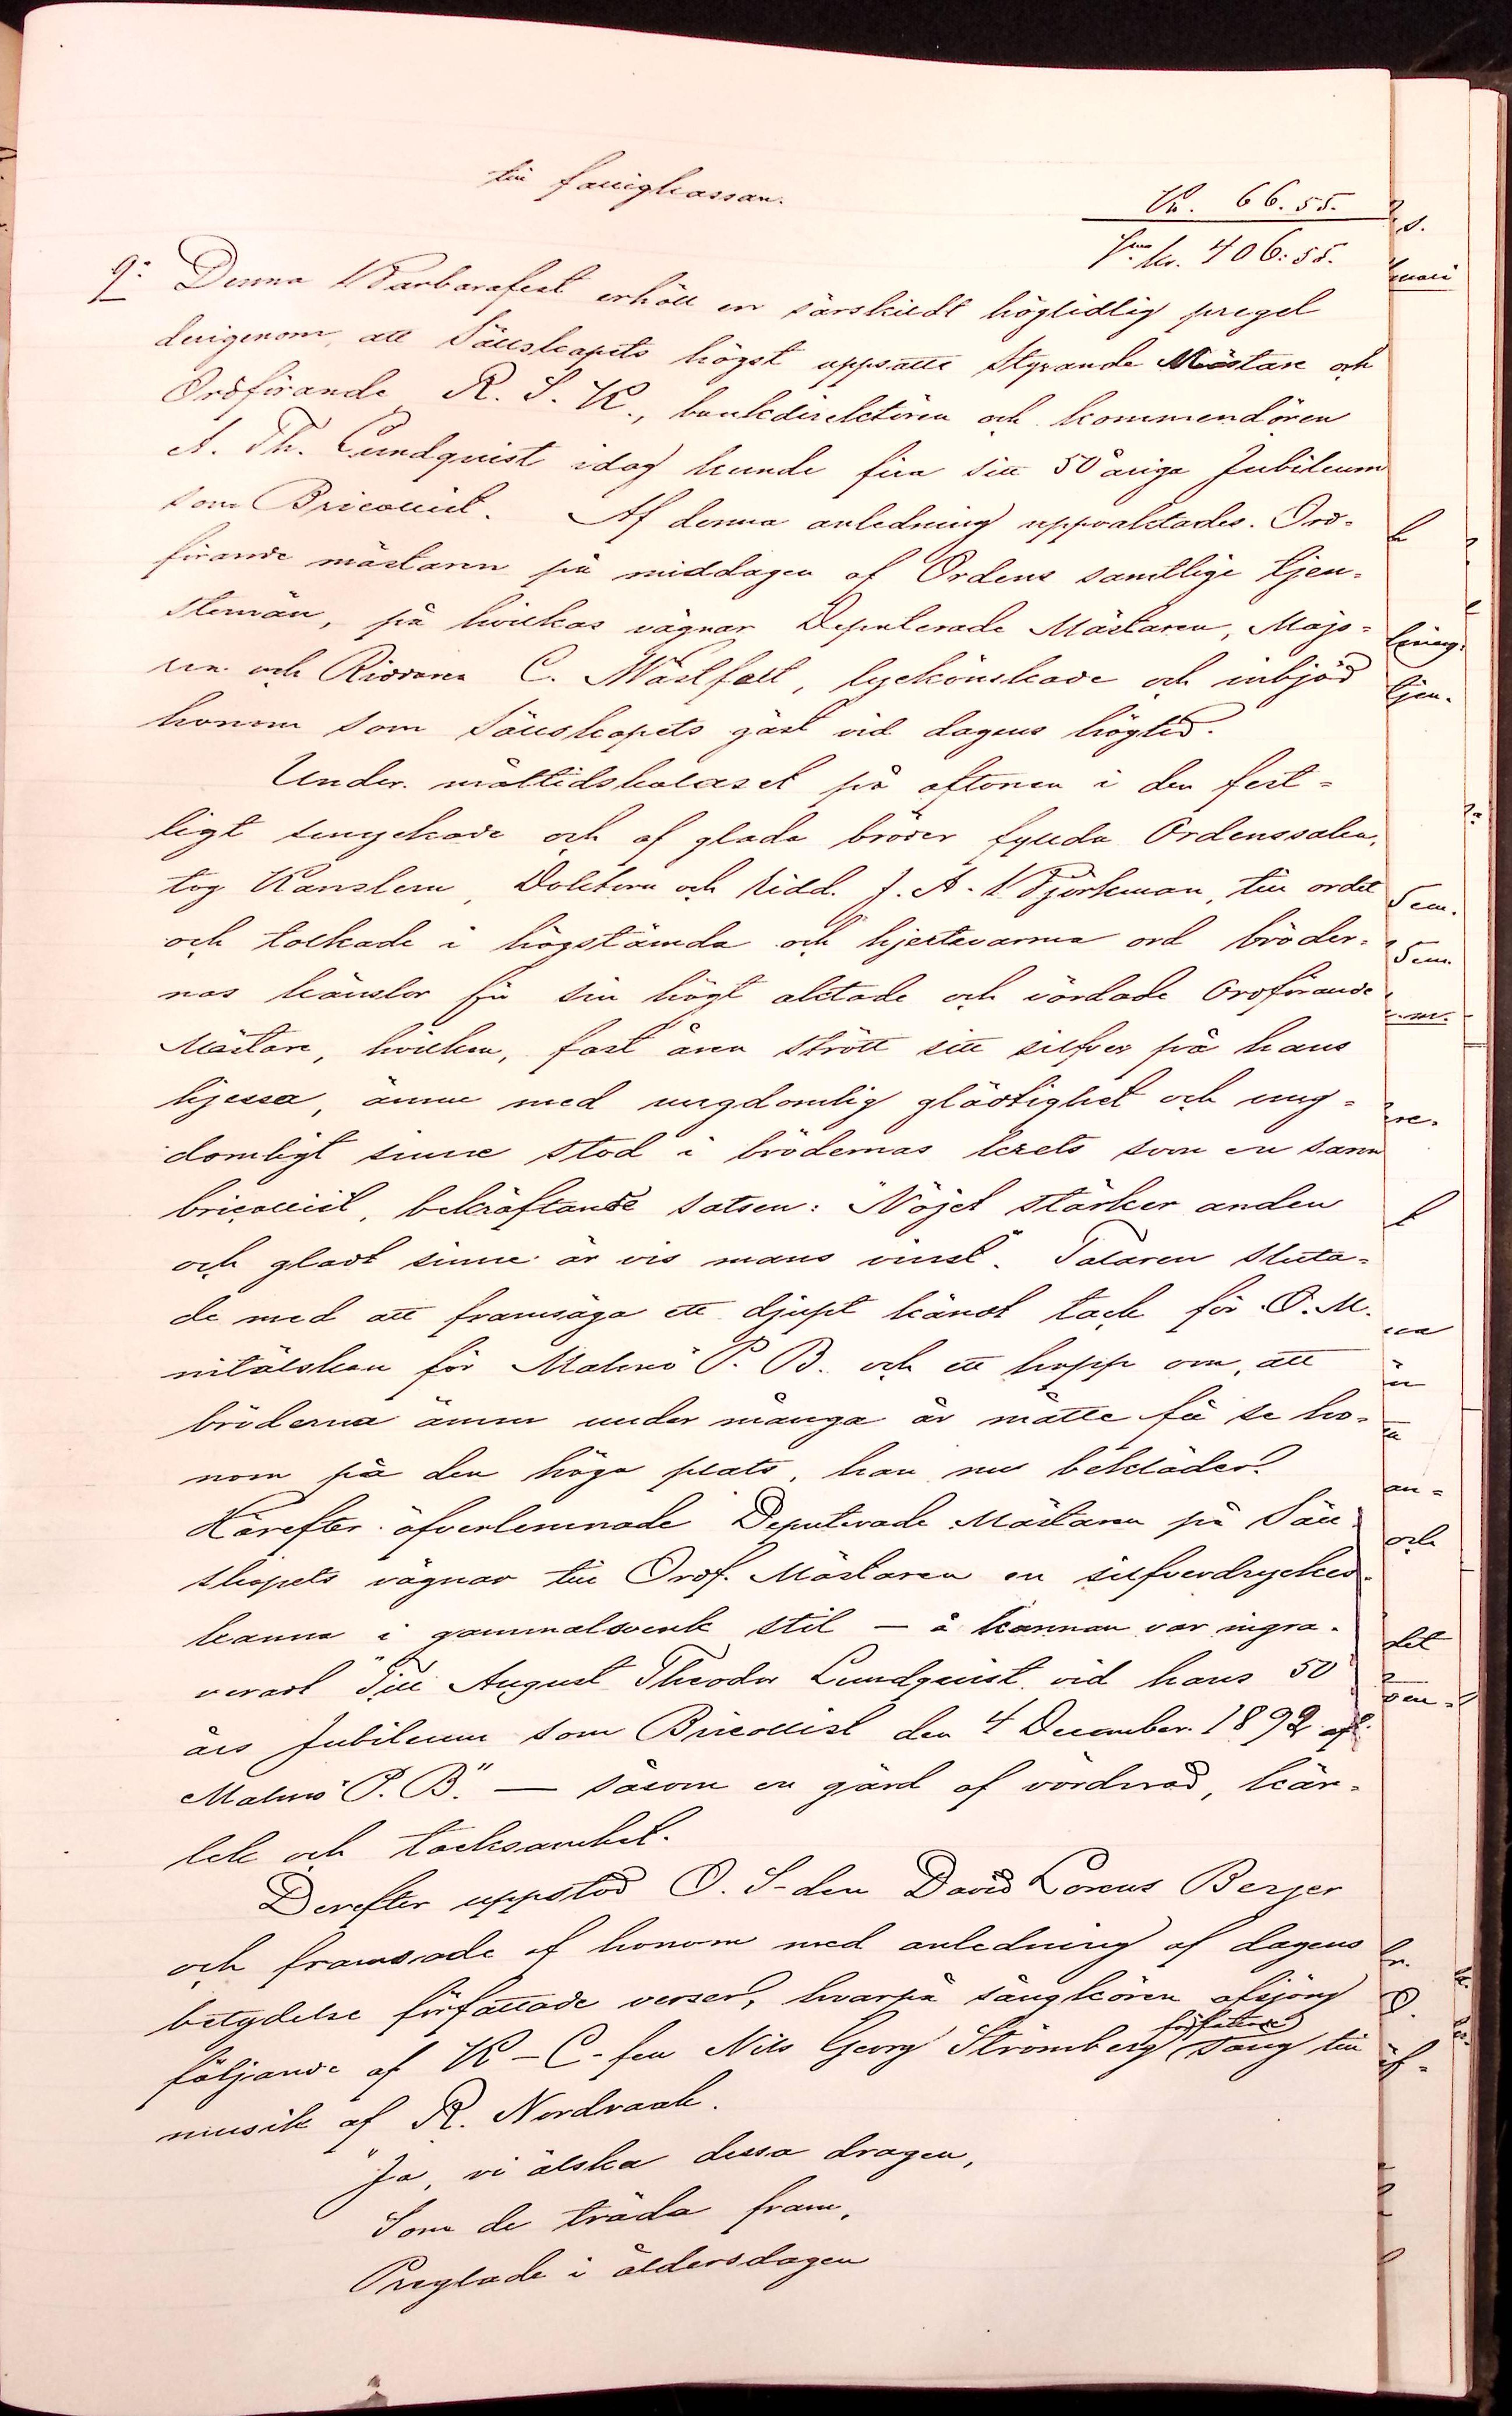 till fattigkassan.
Kr. 66.55.
S:ma kr. 406:55.
9: Denna Barbarafest erhöll en särskildt högtidlig pregel
derigenom, att Sällskapets högst uppsatte Styrande Mästare och
Ordförande R. S. K., bankdirektören och kommendören
A. Th. Lundquist idag kunde fira sitt 50 åriga Jubileum
som Bricollist. Af denna anledning uppvaktades Ord-
förande mästaren på middagen af Ordens samtlige tjen-
stemän, på hvilkas vägnar Deputerade Mästaren, Majo-
ren och Riddaren C. Wästfelt, lyckönskade och inbjöd
honom som Sällskapets gäst vid dagens högtid.
Under måltidskalaset på aftonen i den fest-
ligt smyckade och af glada bröder fyllda Ordenssalen,
tog Kanslern, Doktorn och Ridd. J. A. Björkman, till ordet
och tolkade i högstämda och hjertevarma ord bröder-
nas känslor för sin högt aktade och vördade Ordförande
Mästare, hvilken, fast åren strött sitt silfver på hans
hjessa, ännu med ungdomlig glädtighet och ung-
domligt sinne stod i brödernas krets som en sann
bricollist, bekräftande satsen: "Nöjet stärker anden
och gladt sinne är vis mans vinst". Talaren sluta-
de med att framsäga ett djupt kändt tack för O. M.
nitälskan för Malmö P. B. och ett hopp om, att
bröderna ännu under många år måtte få se ho-
nom på den höga plats, han nu bekläder.
Härefter öfverlemnade Deputerade Mästaren på Säll-
skapets vägnar till Ordf. Mästaren en silfverdryckes-
kanna i gammalsvensk stil — å kannan var ingra-
veradt "Till August Theodor Lundquist vid hans 50
års Jubileum som Bricollist den 4 December 1892 af
Malmö P. B." — såsom en gärd af vördnad, kär-
lek och tacksamhet.
Derefter uppstod O. S-den David Loreus Berger
och framsade af honom med anledning af dagens
betydelse författade verser, hvarpå sångkören afsjöng
följande af K-C-fen Nils Georg Strömberg författade sång till
musik af R. Nordraak.
"Ja, vi älska dessa dragen,
Som de träda fram,
Preglade i åldersdagen